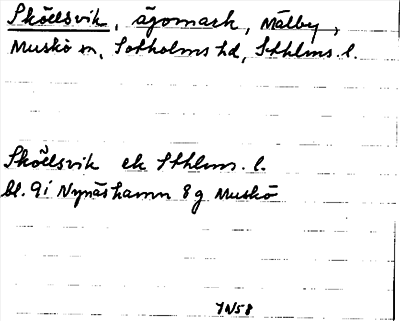 Sköelsvik, ägomark, Mälby,
Muskö sn, Sotholms hd, Sthlms. l.
Sköelsvik ek Sthlms. l.
bl. 9i Nynäshamn 8 g Muskö